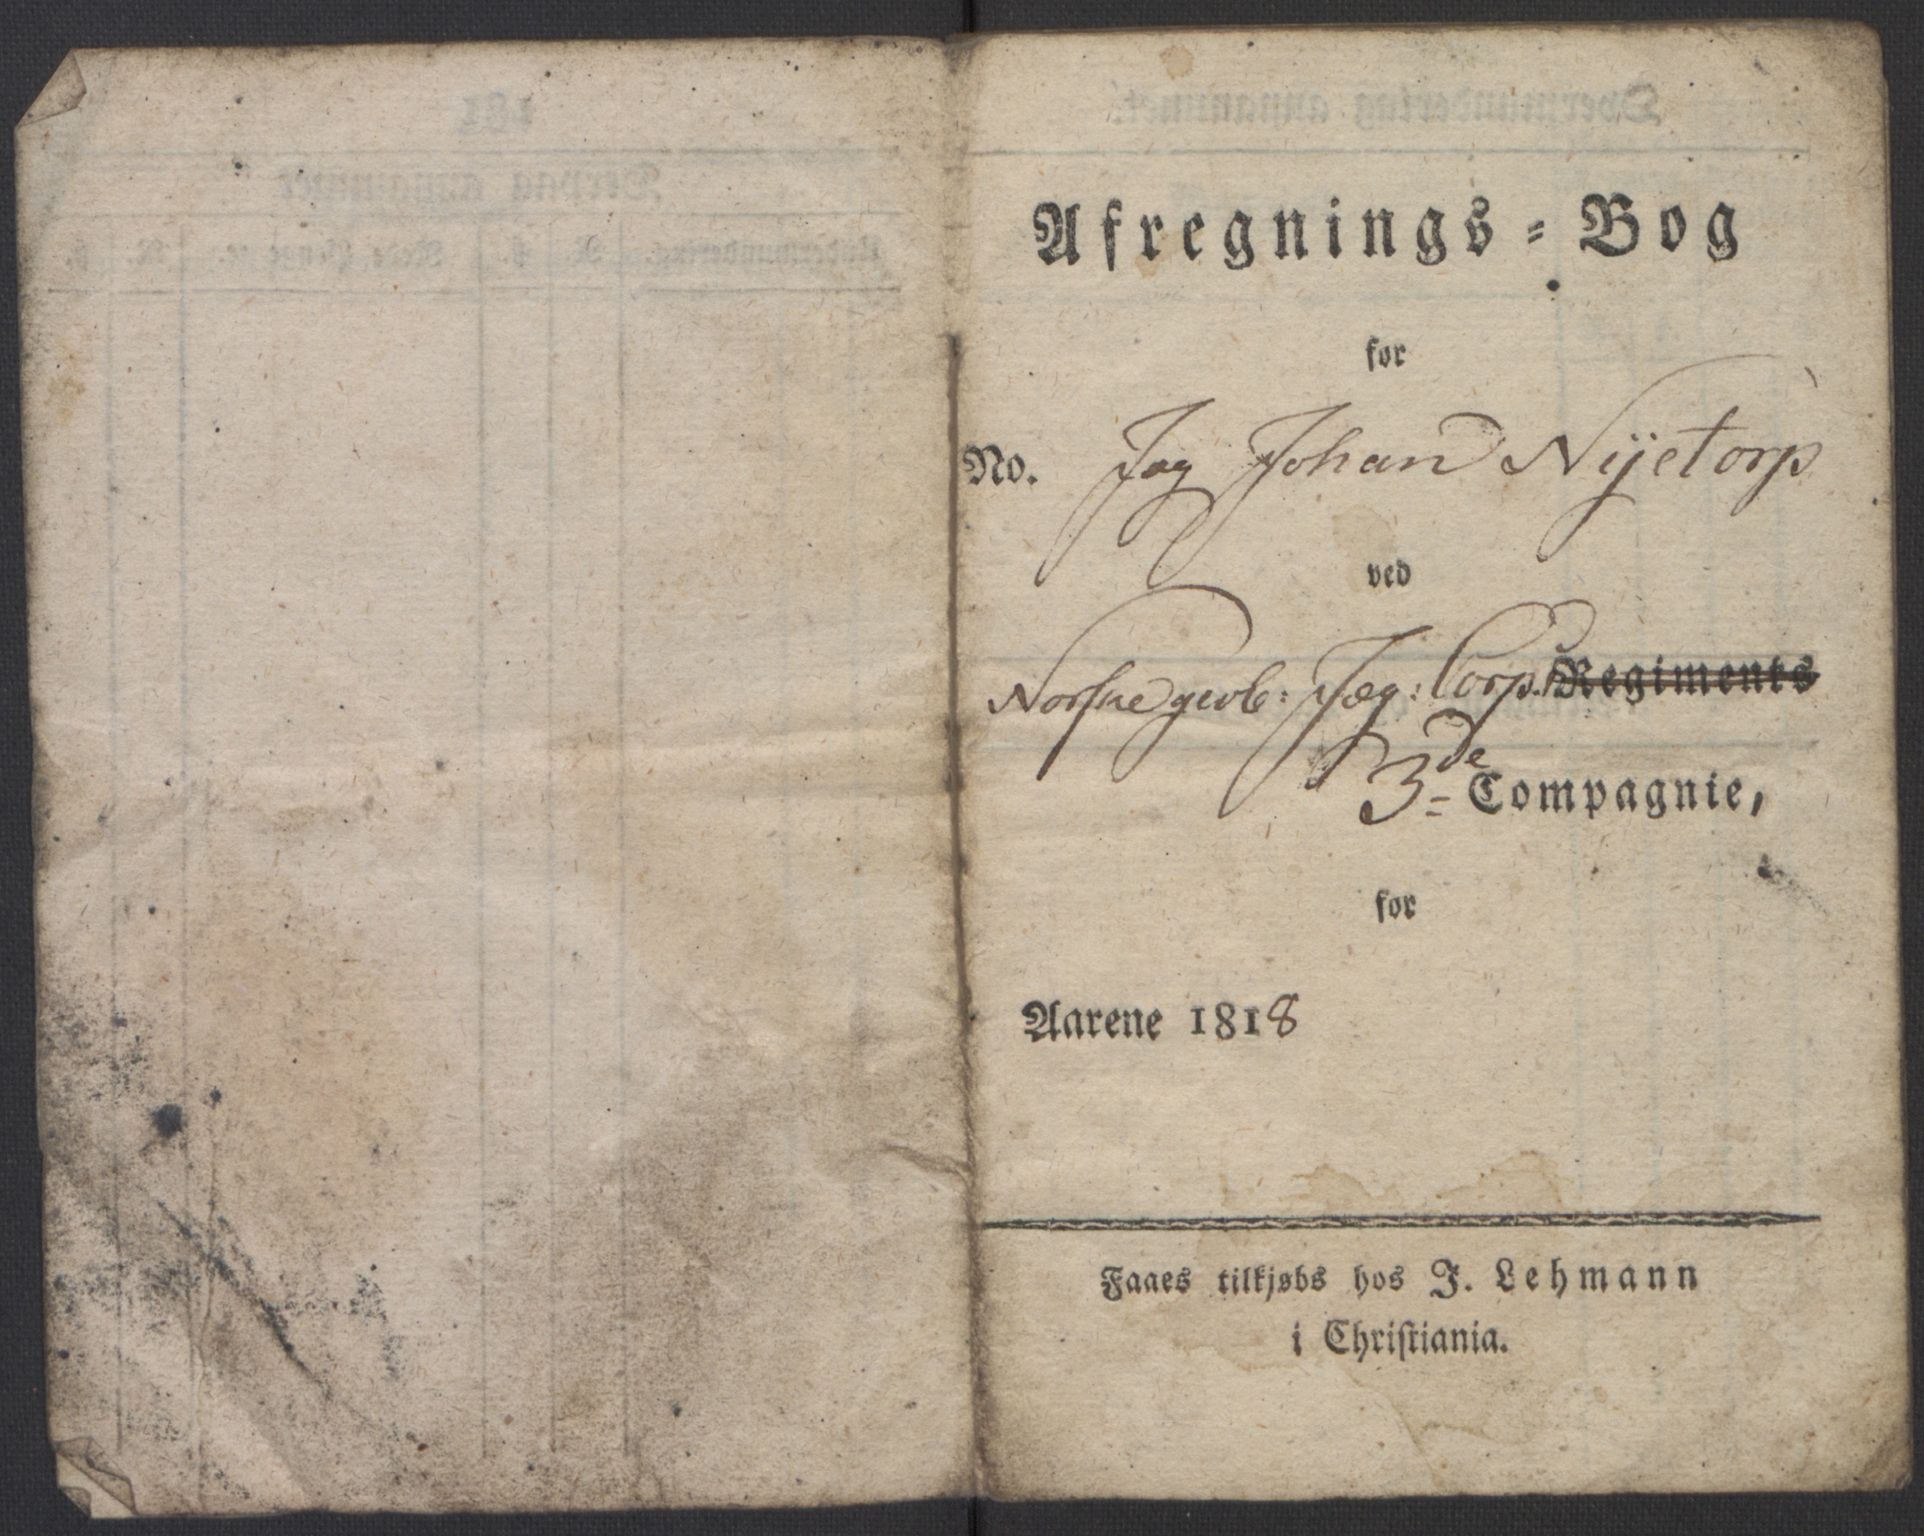 Afregnings-Bog
for
No. Jæg Johan Nyetorp
ved
Norske gevb: Jæg: Corps Regiments
3de Compagnie,
for
Aarene 1818
Faaes tilkjøbs hos J. Lehmann
i Christiania.